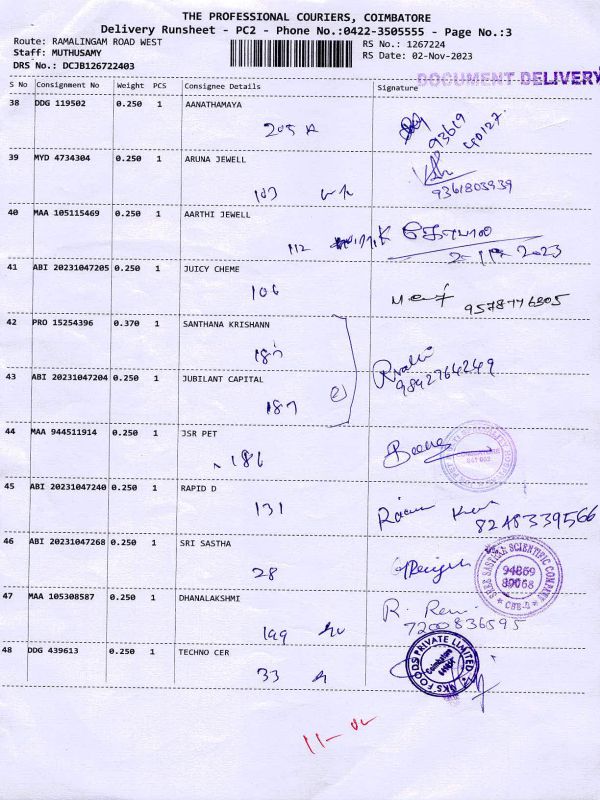 THE PROFESSIONAL COURIERS, COIMBATORE
Delivery Runsheet - PC2 - Phone No.:0422-3505555 - Page No.:3
Route: RAMALINGAM ROAD WEST
Staff: MUTHUSAMY
DRS No.: DCJB126722403
RS No.: 1267224
RS Date: 02-Nov-2023
DOCUMENT DELIVERY
S No Consignment No Weight PCS Consignee Details Signature
38 DDG 119502 0.250 1 AANATHAMAYA
205 A
93619
40127.
39 MYD 4734304 0.250 1 ARUNA JEWELL
103
9361803939
40 MAA 105115469 0.250 1 AARTHI JEWELL
112
2023
41 ABI 20231047205 0.250 1 JUICY CHEME
106
9578776905
42 PRO 15254396 0.370 1 SANTHANA KRISHANN
187
43 ABI 20231047204 0.250 1 JUBILANT CAPITAL
187
2
9842764249
44 MAA 944511914 0.250 1 JSR PET
186
45 ABI 20231047240 0.250 1 RAPID D
131
8248339566
46 ABI 20231047268 0.250 1 SRI SASTHA
28
SREE SASTHAA SCIENTIFIC COMPANY
94869
89068
CBE-4
47 MAA 105308587 0.250 1 DHANALAKSHMI
199
7200836595
48 DDG 439613 0.250 1 TECHNO CER
33
NKS FOODS PRIVATE LIMITED
Coimbatore